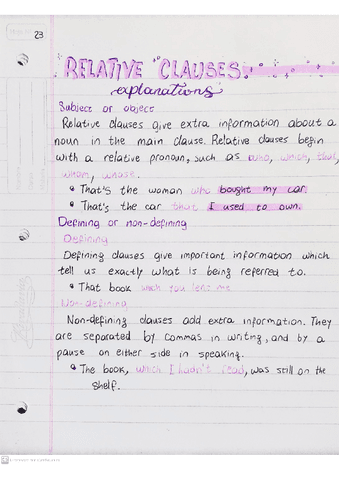 23
RELATIVE CLAUSES.
explanations
Subject or object
Relative clauses give extra information about a
noun in the main clause. Relative clauses begin
with a relative pronoun, such as who, which, that,
whom, whose.
That's the woman who bought my car.
That's the car that I used to own.
Defining or non-defining
Defining
Defining clauses give important information which
tell us exactly what is being referred to.
That book you lens me
Non-defining
Non-defining clauses add extra information. They
are separated by commas in writing, and by a
pause on either side in speaking.
The book, which I hadn't read, was still on the
shelf.